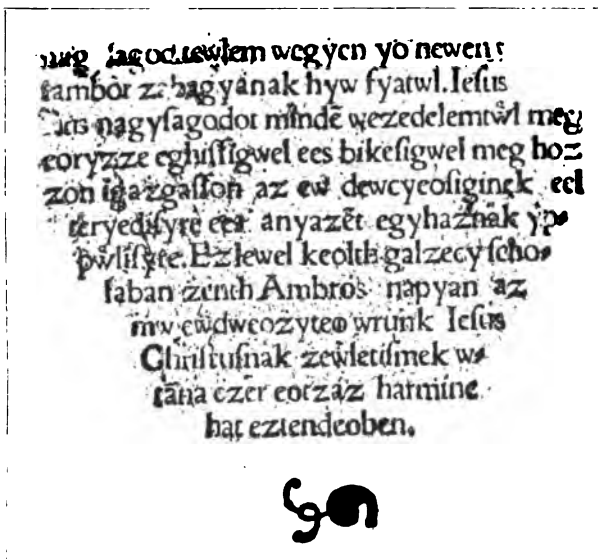 nag wcgycn yo newent
tambor zabagyanak hyw fyatwl. Ieſus
nagyſagodot mindē wezedelemtwl meg
eoryzze eghiſſigwel ees bikeſigwel meg hoz
zon igazgaſſon az ew dewcyeoſiginek eel
teryediſyre ees anyazēt egyhaznak yp
pwliſyre. Ez lewel keolth galzecy ſcho
laban zenth Ambros napyan az
mw ewdweozyteo wrunk Ieſus
Chriſtuſnak zewletiſinek w
tāna czer eotzaz harmine
hat eztendeoben.